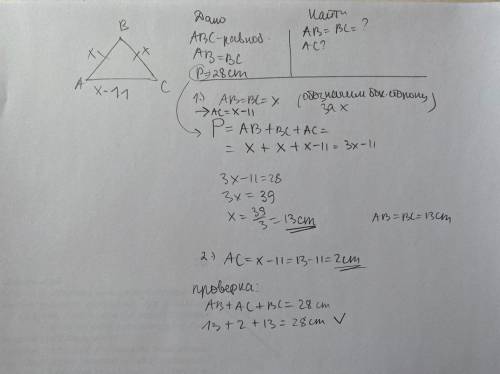 B
x x
A C
x-11
Дано
ABC-равноб.
AB=BC
P=28cm
Найти
AB=BC=?
AC?
1.) AB=BC=X (обозначим бок. сторону за x)
→AC=X-11
P=AB+BC+AC=
=X+X+X-11=3X-11
3X-11=28
3X=39
X=39/3=13cm
AB=BC=13cm
2.) AC=X-11=13-11=2cm
проверка:
AB+AC+BC=28cm
13+2+13=28cm V